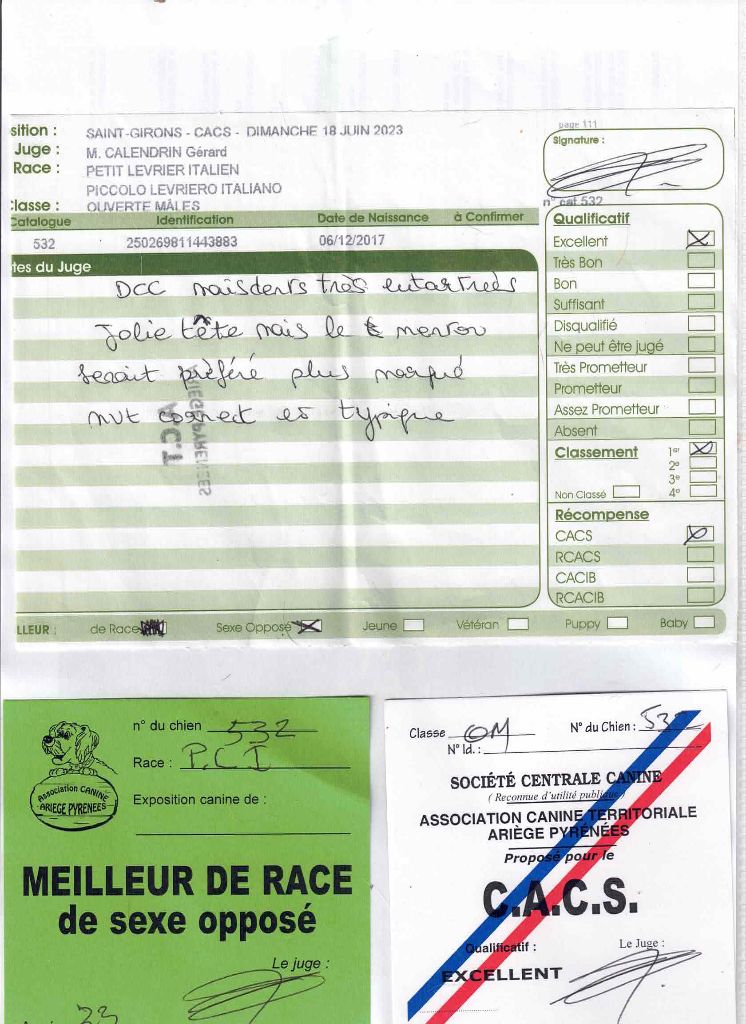 sition : SAINT-GIRONS - CACS - DIMANCHE 18 JUIN 2023
Juge : M. CALENDRIN Gérard
Race : PETIT LEVRIER ITALIEN
PICCOLO LEVRIERO ITALIANO
lasse : OUVERTE MÂLES
page 111
Signature :
n° cat 532
Catalogue Identification Date de Naissance à Confirmer
532 250269811443883 06/12/2017
tes du Juge
DCC mais dents très entartrées
Jolie tête mais le menton
serait préféré plus marqué
mvt correct et typique
ARIEGE PYRENEES
A.C.T
Qualificatif
Excellent
Très Bon
Bon
Suffisant
Disqualifié
Ne peut être jugé
Très Prometteur
Prometteur
Assez Prometteur
Absent
Classement 1er
2e
3e
Non Classé 4e
Récompense
CACS
RCACS
CACIB
RCACIB
LLEUR : de Race Sexe Opposé Jeune Vétéran Puppy Baby
n° du chien 532
Race : P.L I
Exposition canine de :
Association CANINE
ARIEGE PYRENEES
MEILLEUR DE RACE
de sexe opposé
Le juge :
23
Classe OM N° du Chien : 532
N° Id. :
SOCIÉTÉ CENTRALE CANINE
( Reconnue d'utilité publique )
ASSOCIATION CANINE TERRITORIALE
ARIÈGE PYRÉNÉES
Proposé pour le
C.A.C.S.
Qualificatif : Le Juge :
EXCELLENT